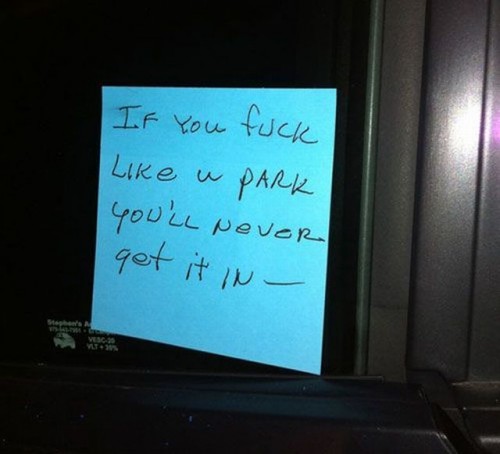 IF You fuck
LIKe u PARK
YOU'LL NeveR
get it IN —
Stephen's
VESC-20
VLT • 35%